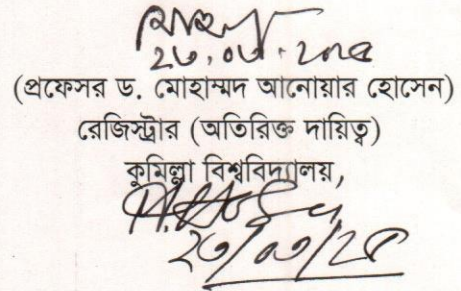 ২৩.০৩.২০২৫
(প্রফেসর ড. মোহাম্মদ আনোয়ার হোসেন)
রেজিস্ট্রার (অতিরিক্ত দায়িত্ব)
কুমিল্লা বিশ্ববিদ্যালয়,
২৩/০৩/২৫